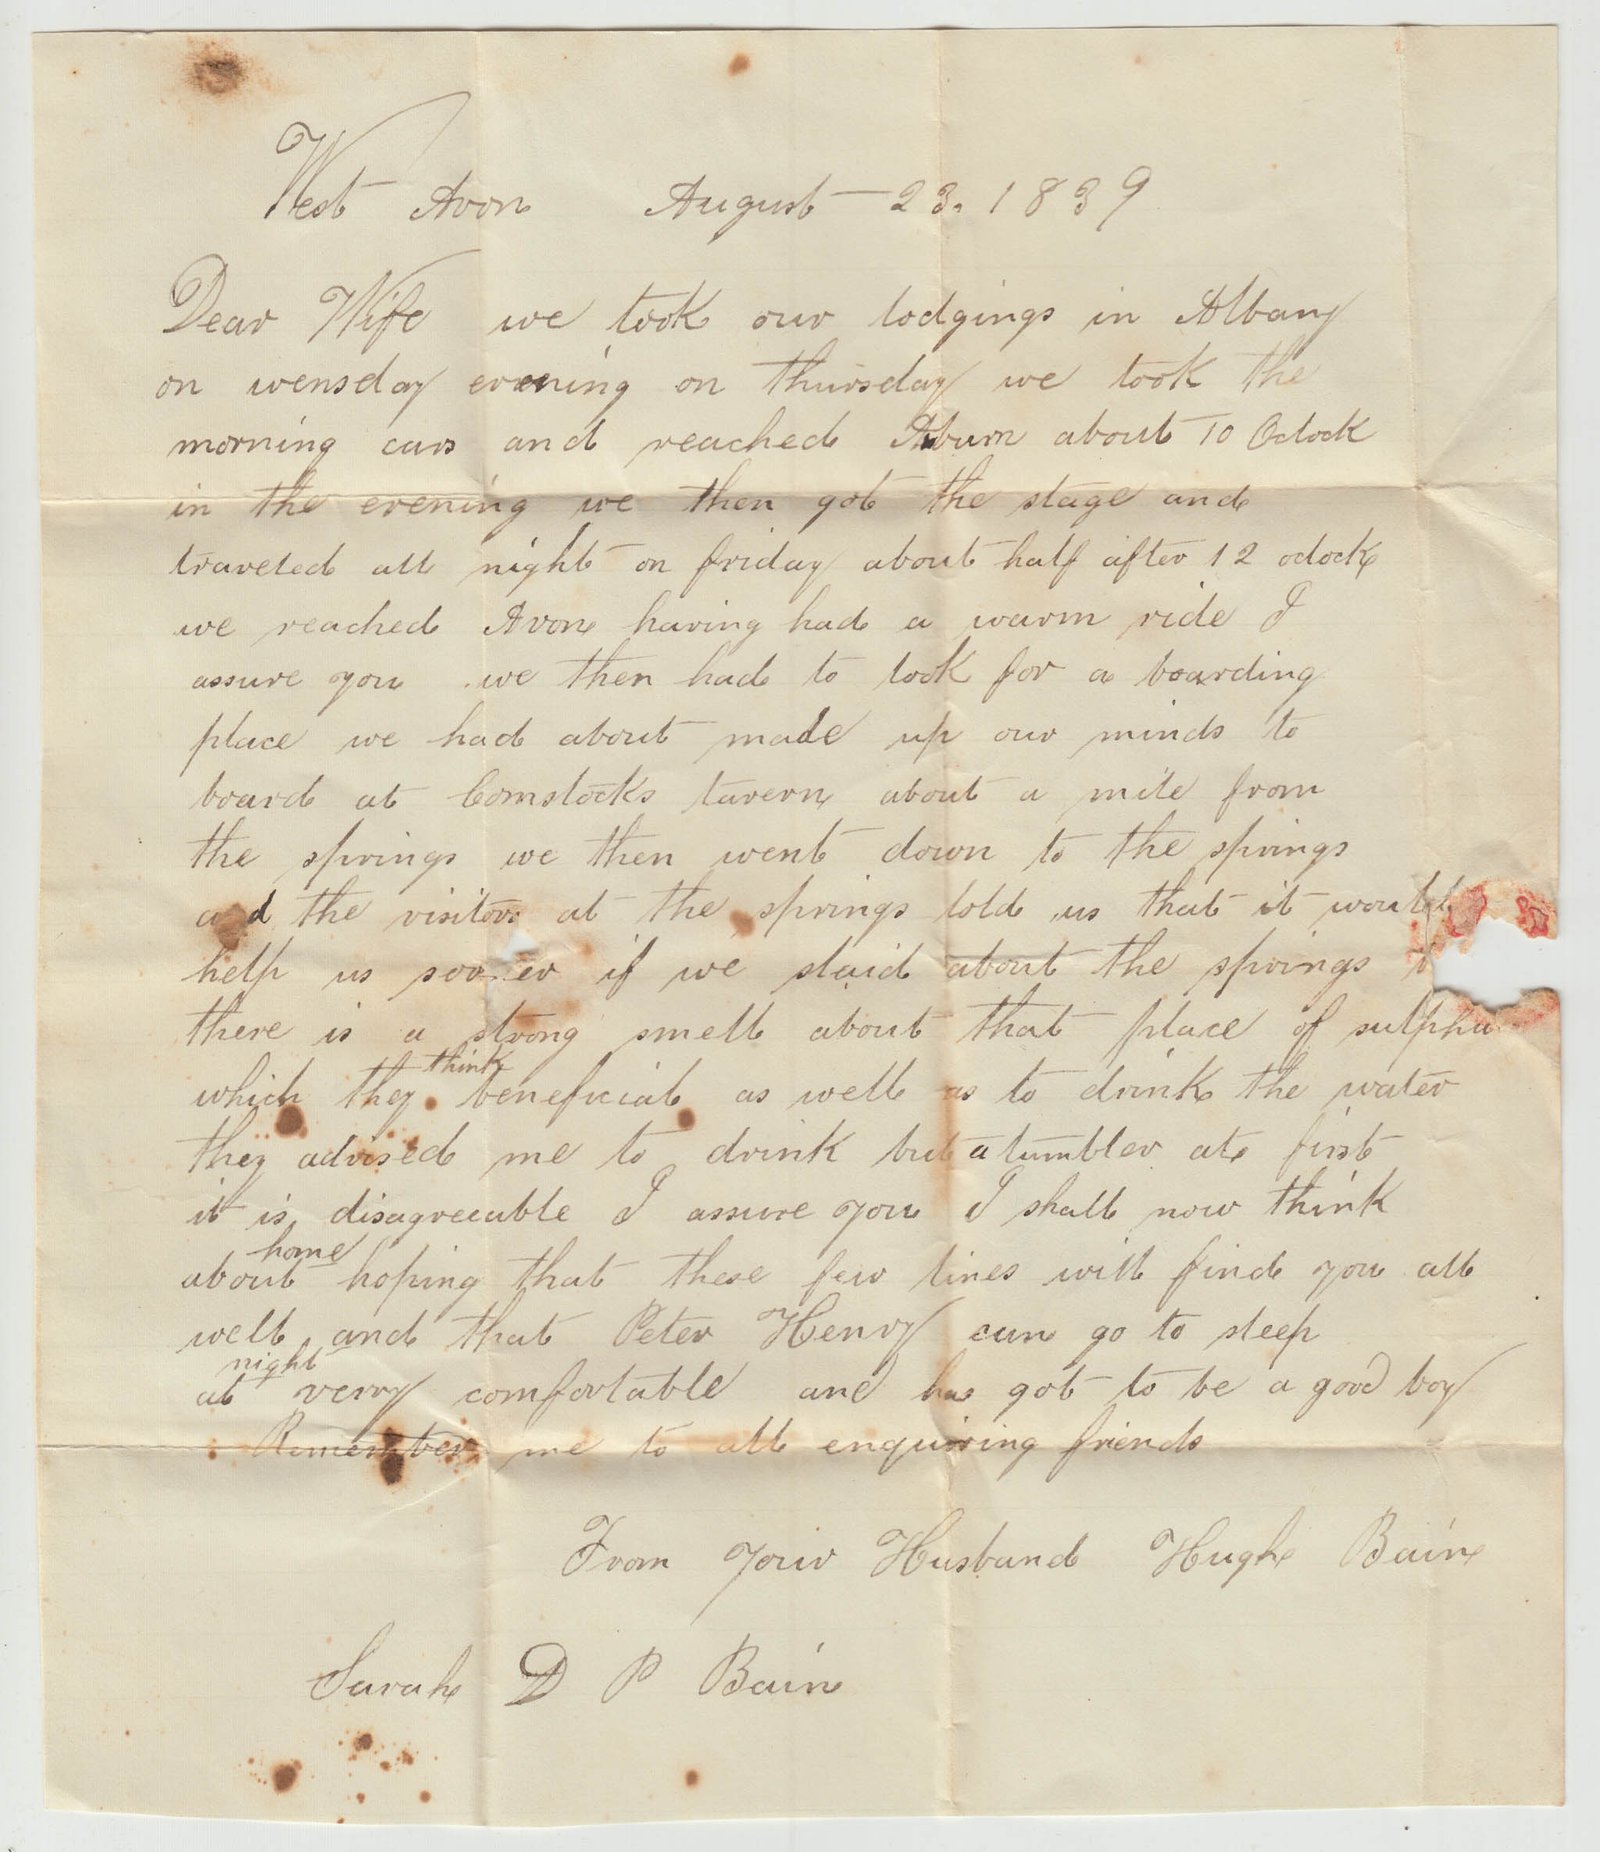 West Avon August 23. 1839
Dear Wife we took our lodgings in Albany
on wensday evening on thursday we took the
morning cars and reached Aburn about 10 Oclock
in the evening we then got the stage and
traveled all night on friday about half after 12 oclock
we reached Avon having had a warm ride I
assure you we then had to look for a boarding
place we had about made up our minds to
board at Comstocks tavern about a mile from
the springs we then went down to the springs
and the visitors at the springs told us that it would
help us sooner if we staid about the springs
there is a strong smell about that place of sulphu
which they think beneficial as well as to drink the water
they advised me to drink but a tumbler at first
it is disagreeable I assure you I shall now think
about home hoping that these few lines will find you all
well and that Peter Henry can go to sleep
at night verry comfortable and has got to be a good boy
Remember me to all enquiring friends
From your Husband Hugh Bain
Sarah D P Bain